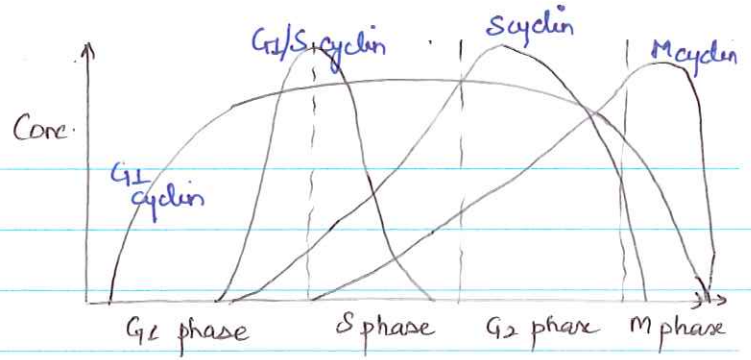 G1/S cyclin
S cyclin
M cyclin
Conc.
G1
cyclin
G1 phase
S phase
G2 phase
M phase